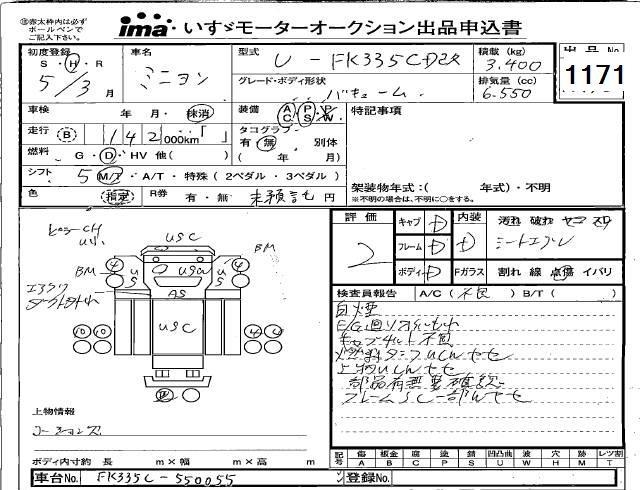 ㊟赤太枠内は必ず
ボールペンで
ご記入下さい。
ima いすゞモーターオークション出品申込書
初度登録
S・H・R
5/3月
車名
ミニヨン
型式
U-FK335C改
グレード・ボディ形状
バキューム
積載(kg)
3.400
排気量(cc)
6.550
出品No
1171
車検 年 月・抹消
走行 B 142 000km「 」
燃料 G・D・HV 他( )
シフト 5 M/T・A/T・特殊(2ペダル・3ペダル)
色 指定
R券 有・無 未預託 円
装備 AC PS PW
タコグラフ
有・無 別体
( 年 月)
特記事項
架装物年式:( 年式)・不明
※不明の場合は、不明に○をする。
評価
2
キャブ D
フレーム D
ボディー D
内装
D
Fガラス
汚れ 破れ ヤニ スリ
シートエプレ
割れ 線 点傷 イパリ
検査員報告 A/C(不良)B/T( )
白煙
E/G廻り
キャブチルト不良
燃料タンクUCムセセ
上物UCムセセ
部品有無要確認
フレームSC一部ムセセ
USC
BM
BM
4
4
US
US
USW
AS
USC
上物情報
ボディ内寸約 長 m×幅 m×高 m
記号
傷 A
板金 B
腐 C
塗 P
錆 S
凹凸曲 U
波 W
穴 H
跡 M
レツ割 T
車台No. FK335C-550055
登録No.